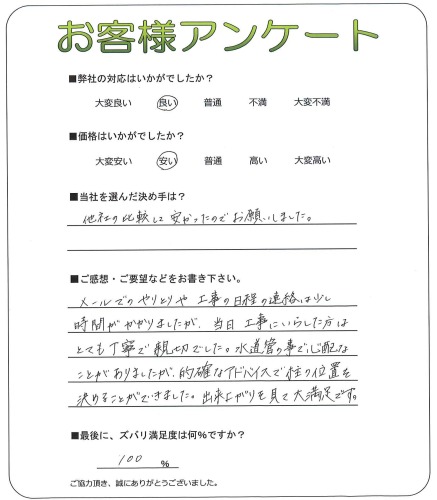 お客様アンケート
■弊社の対応はいかがでしたか？
大変良い 良い 普通 不満 大変不満
■価格はいかがでしたか？
大変安い 安い 普通 高い 大変高い
■当社を選んだ決め手は？
他社の比較して安かったのでお願いしました。
■ご感想・ご要望などをお書き下さい。
メールでのやりとりや工事の日程の連絡は少し
時間がかかりましたが、当日工事にいらした方は
とても丁寧で親切でした。水道管の事で心配な
ことがありましたが、的確なアドバイスで柱の位置を
決めることができました。出来上がりを見て大満足です。
■最後に、ズバリ満足度は何%ですか？
100 %
ご協力頂き、誠にありがとうございました。